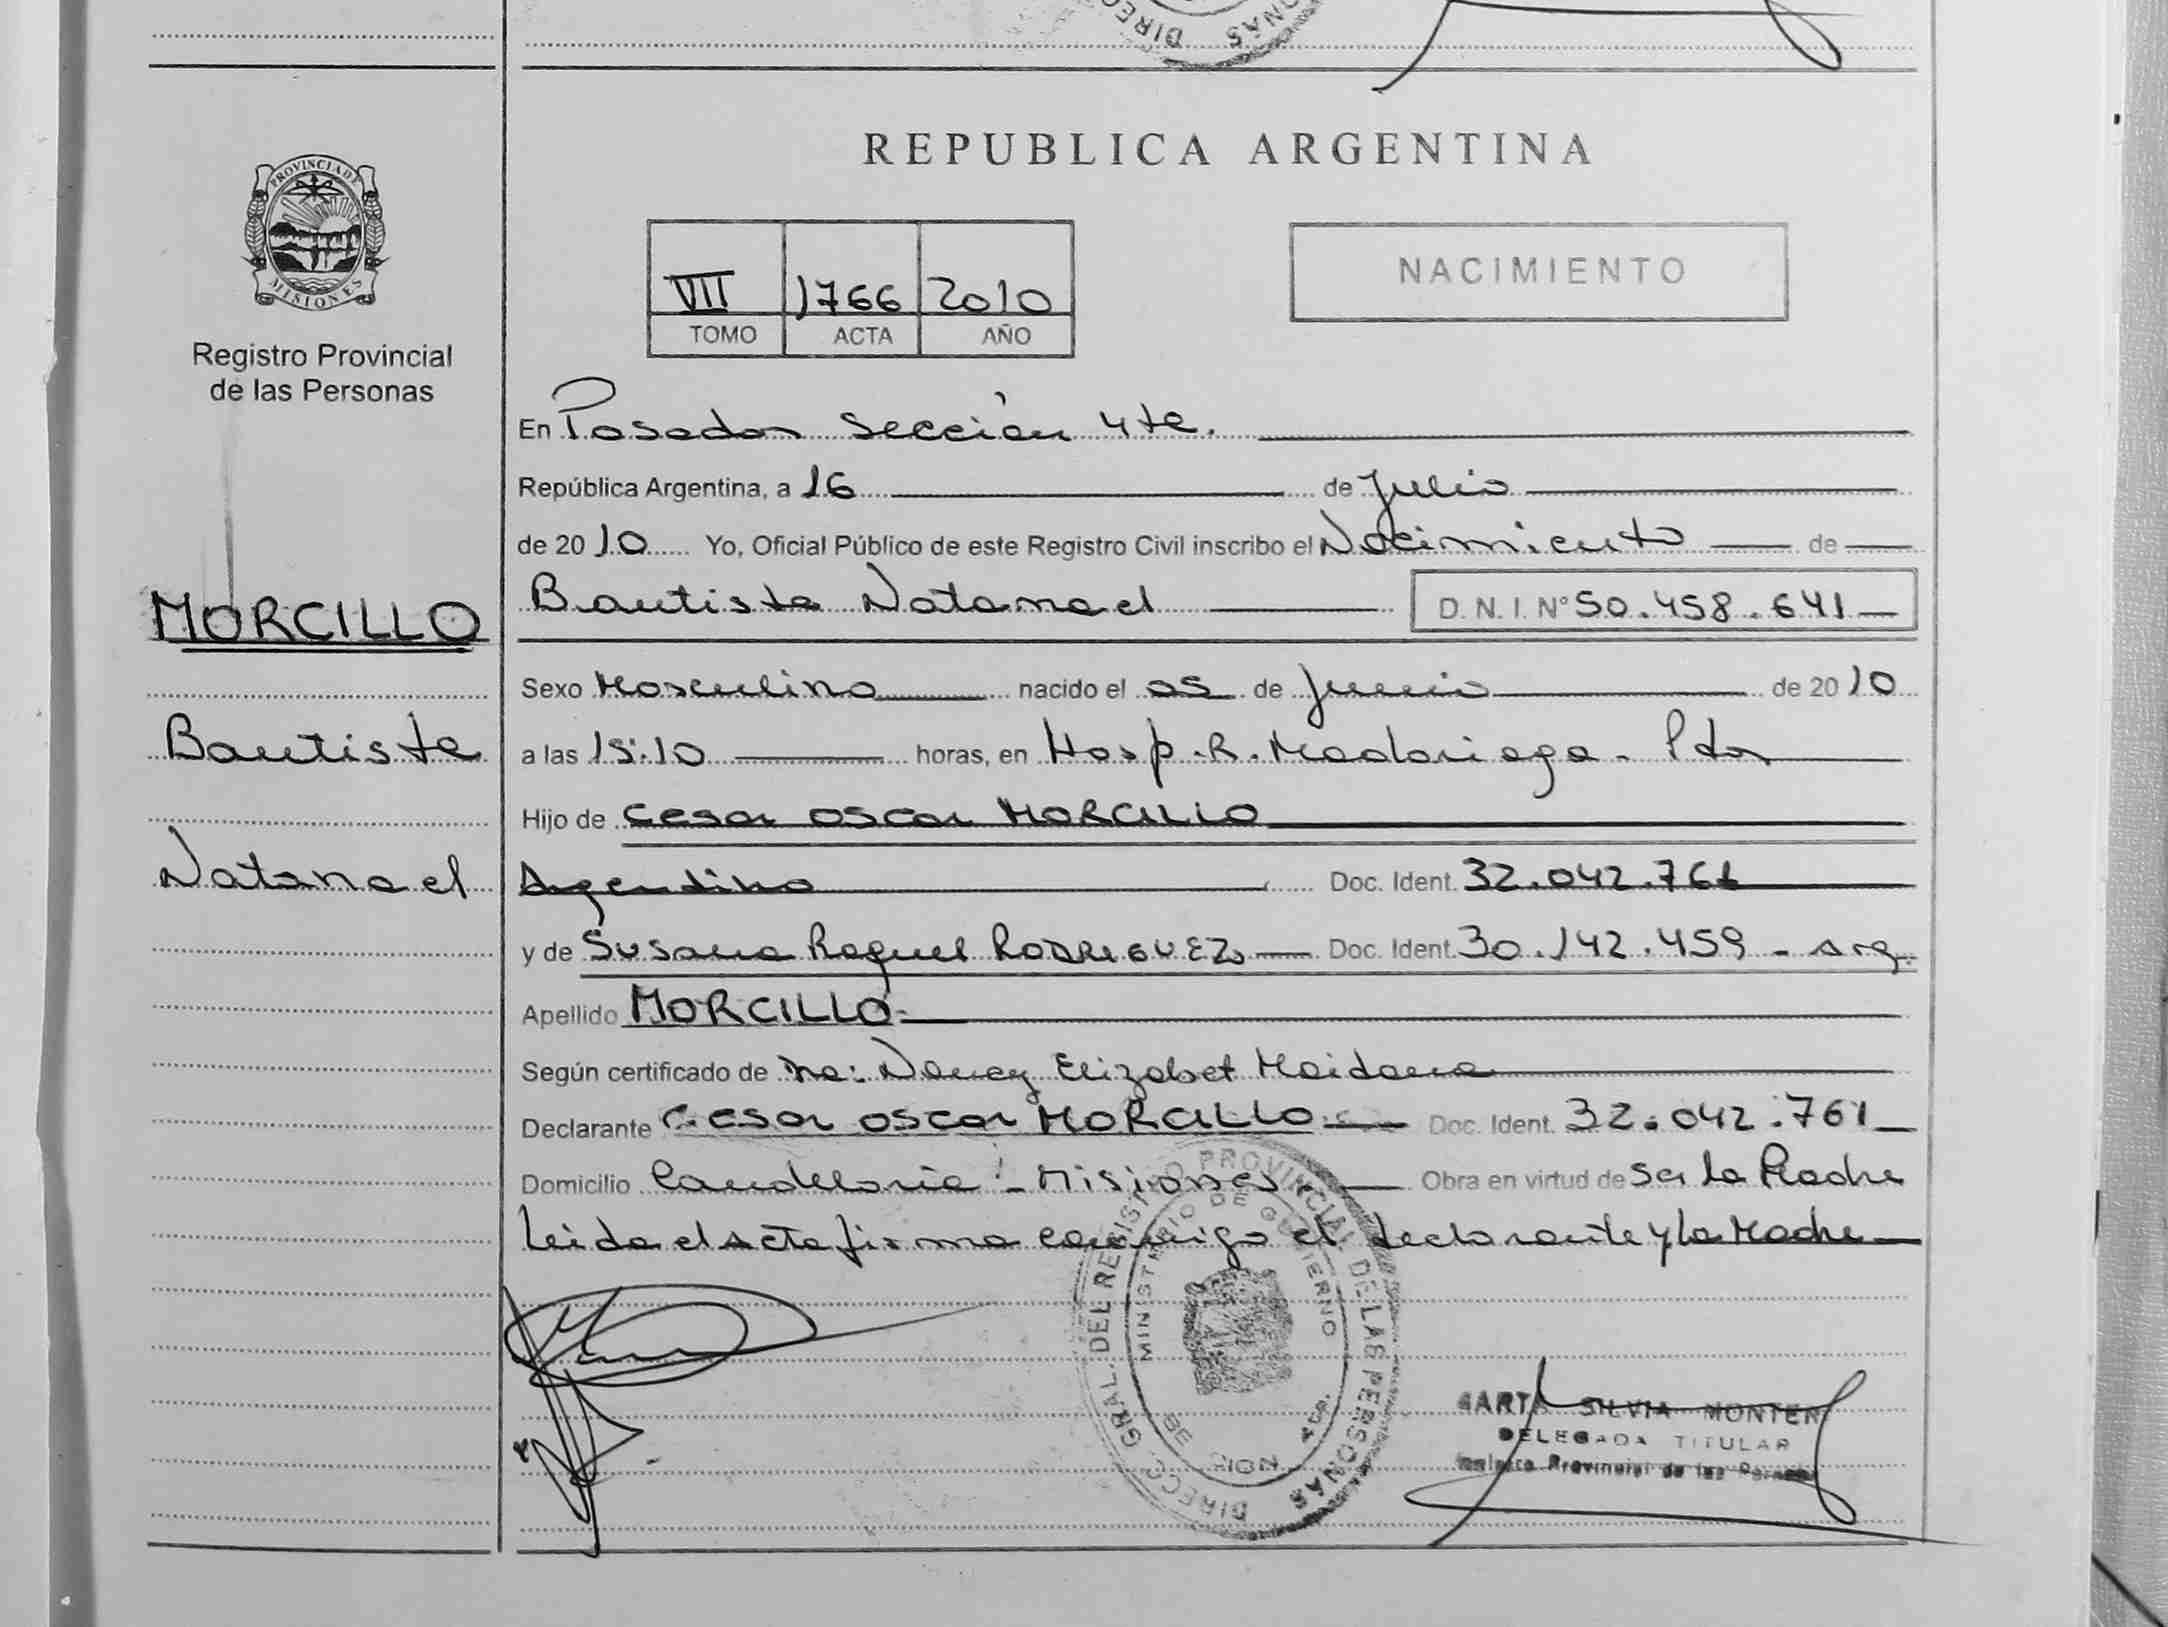 REPUBLICA ARGENTINA
PROVINCIA DE
MISIONES
Registro Provincial
de las Personas
VII 1766 2010
TOMO ACTA AÑO
NACIMIENTO
MORCILLO
Bautista
Natanael
En Posadas Sección 4ta.
República Argentina, a 16 de Julio
de 2010 Yo, Oficial Público de este Registro Civil inscribo el Nacimiento de
Bautista Natanael D. N. I. N° 50.458.641
Sexo Masculino nacido el 05 de Junio de 2010
a las 15:10 horas, en Hosp. R. Madariaga - Pdas
Hijo de Cesar Oscar MORCILLO
Argentino Doc. Ident. 32.042.761
y de Susana Raquel RODRIGUEZ Doc. Ident. 30.142.459 - Arg.
Apellido MORCILLO
Según certificado de Nancy Elizabet Maidana
Declarante Cesar Oscar MORCILLO Doc. Ident. 32.042.761
Domicilio Candelaria - Misiones. Obra en virtud de ser la Madre
Leida el acta firma conmigo el declarante y la Madre
DIRECC. GRAL. DEL REGISTRO PROVINCIAL DE LAS PERSONAS
MINISTERIO DE GOBIERNO
SILVIA
DELEGADA TITULAR
Provincial de las